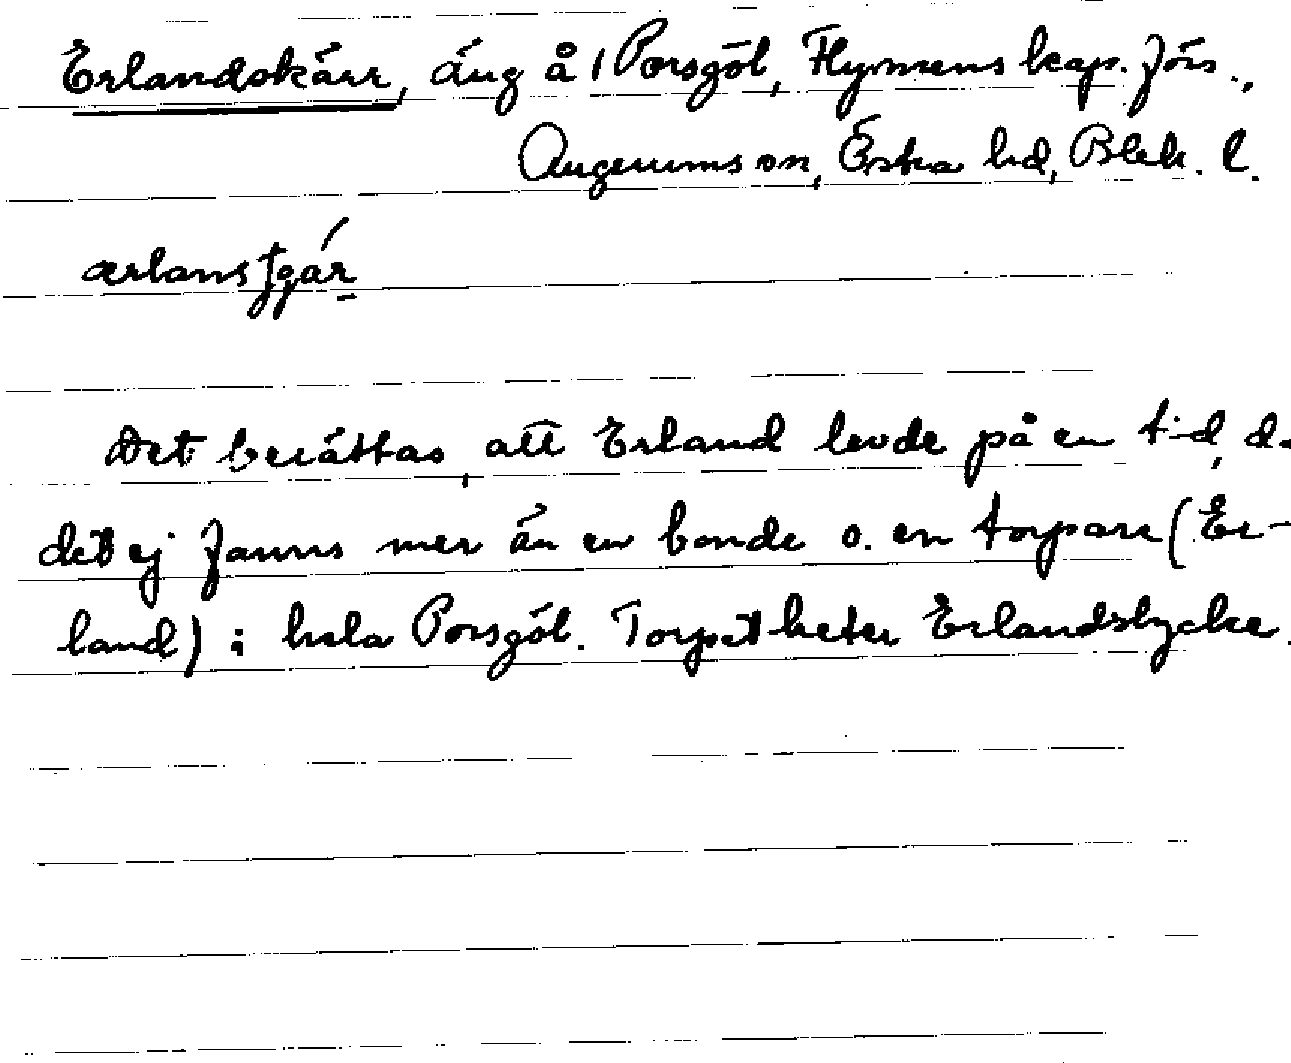 Erlandskärr, äng å 1 Porsgöl, Flymens kap. förs.,
Augerums sn, Östra hd, Blek. l.
Det berättas, att Erland levde på en tid, d
det ej fanns mer än en bonde o. en torpare (Er-
land) i hela Porsgöl. Torpet heter Erlandslycke.